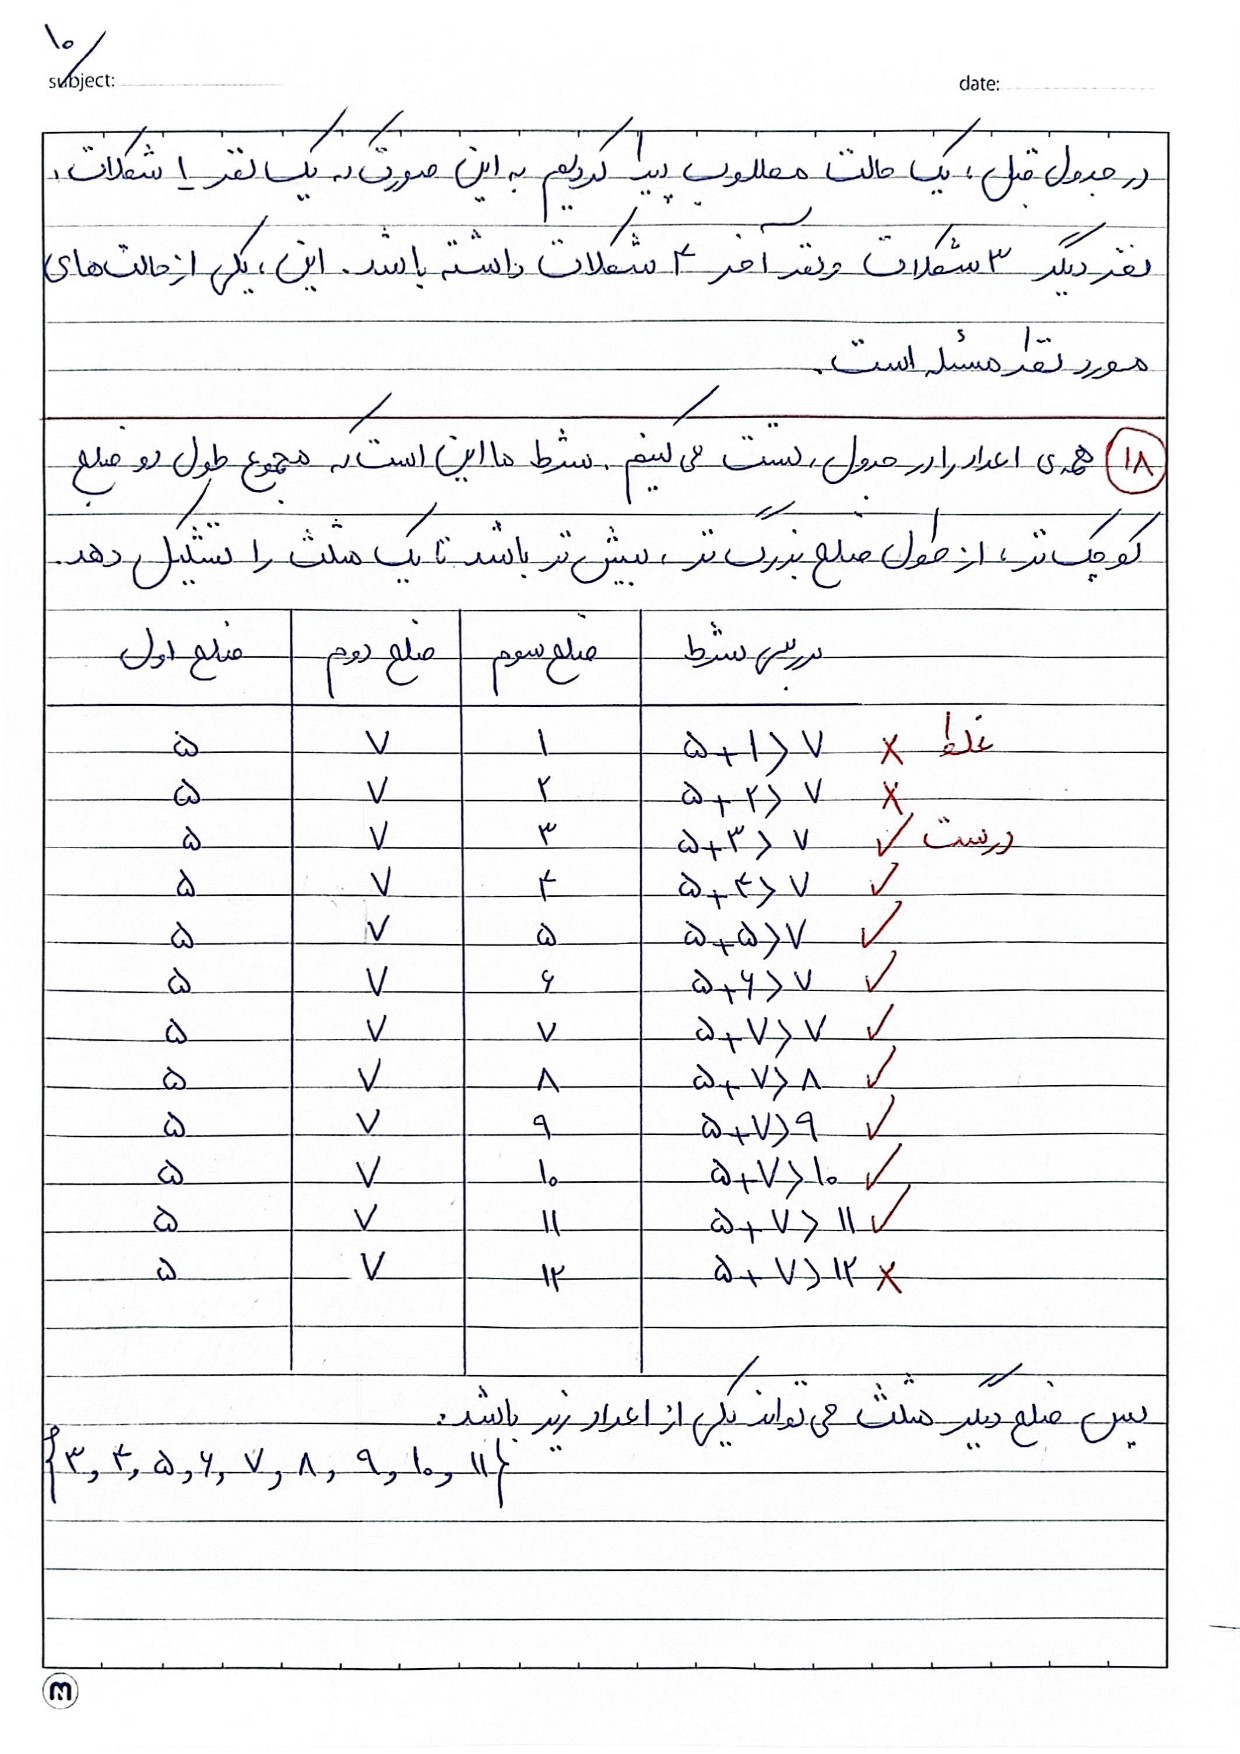 ۱۰
subject:
date:
در جدول قبل، یک حالت مطلوب پیدا کردیم به این صورت که یک نفر ۱ شکلات،
نفر دیگر ۳ شکلات و نفر آخر ۴ شکلات داشته باشد. این، یکی از حالت‌های
مورد نظر مسئله است.
۱۸ همه‌ی اعداد را در جدول، تست می‌کنیم. شرط ما این است که مجموع طول دو ضلع
کوچک‌تر، از طول ضلع بزرگ‌تر، بیش‌تر باشد تا یک مثلث را تشکیل دهد.
ضلع اول ضلع دوم ضلع سوم بررسی شرط
۵ ۷ ۱ ۵+۱>۷ ✗ غلط
۵ ۷ ۲ ۵+۲>۷ ✗
۵ ۷ ۳ ۵+۳>۷ ✓ درست
۵ ۷ ۴ ۵+۴>۷ ✓
۵ ۷ ۵ ۵+۵>۷ ✓
۵ ۷ ۶ ۵+۶>۷ ✓
۵ ۷ ۷ ۵+۷>۷ ✓
۵ ۷ ۸ ۵+۷>۸ ✓
۵ ۷ ۹ ۵+۷>۹ ✓
۵ ۷ ۱۰ ۵+۷>۱۰ ✓
۵ ۷ ۱۱ ۵+۷>۱۱ ✓
۵ ۷ ۱۲ ۵+۷>۱۲ ✗
پس ضلع دیگر مثلث می‌تواند یکی از اعداد زیر باشد.
{۳, ۴, ۵, ۶, ۷, ۸, ۹, ۱۰, ۱۱}